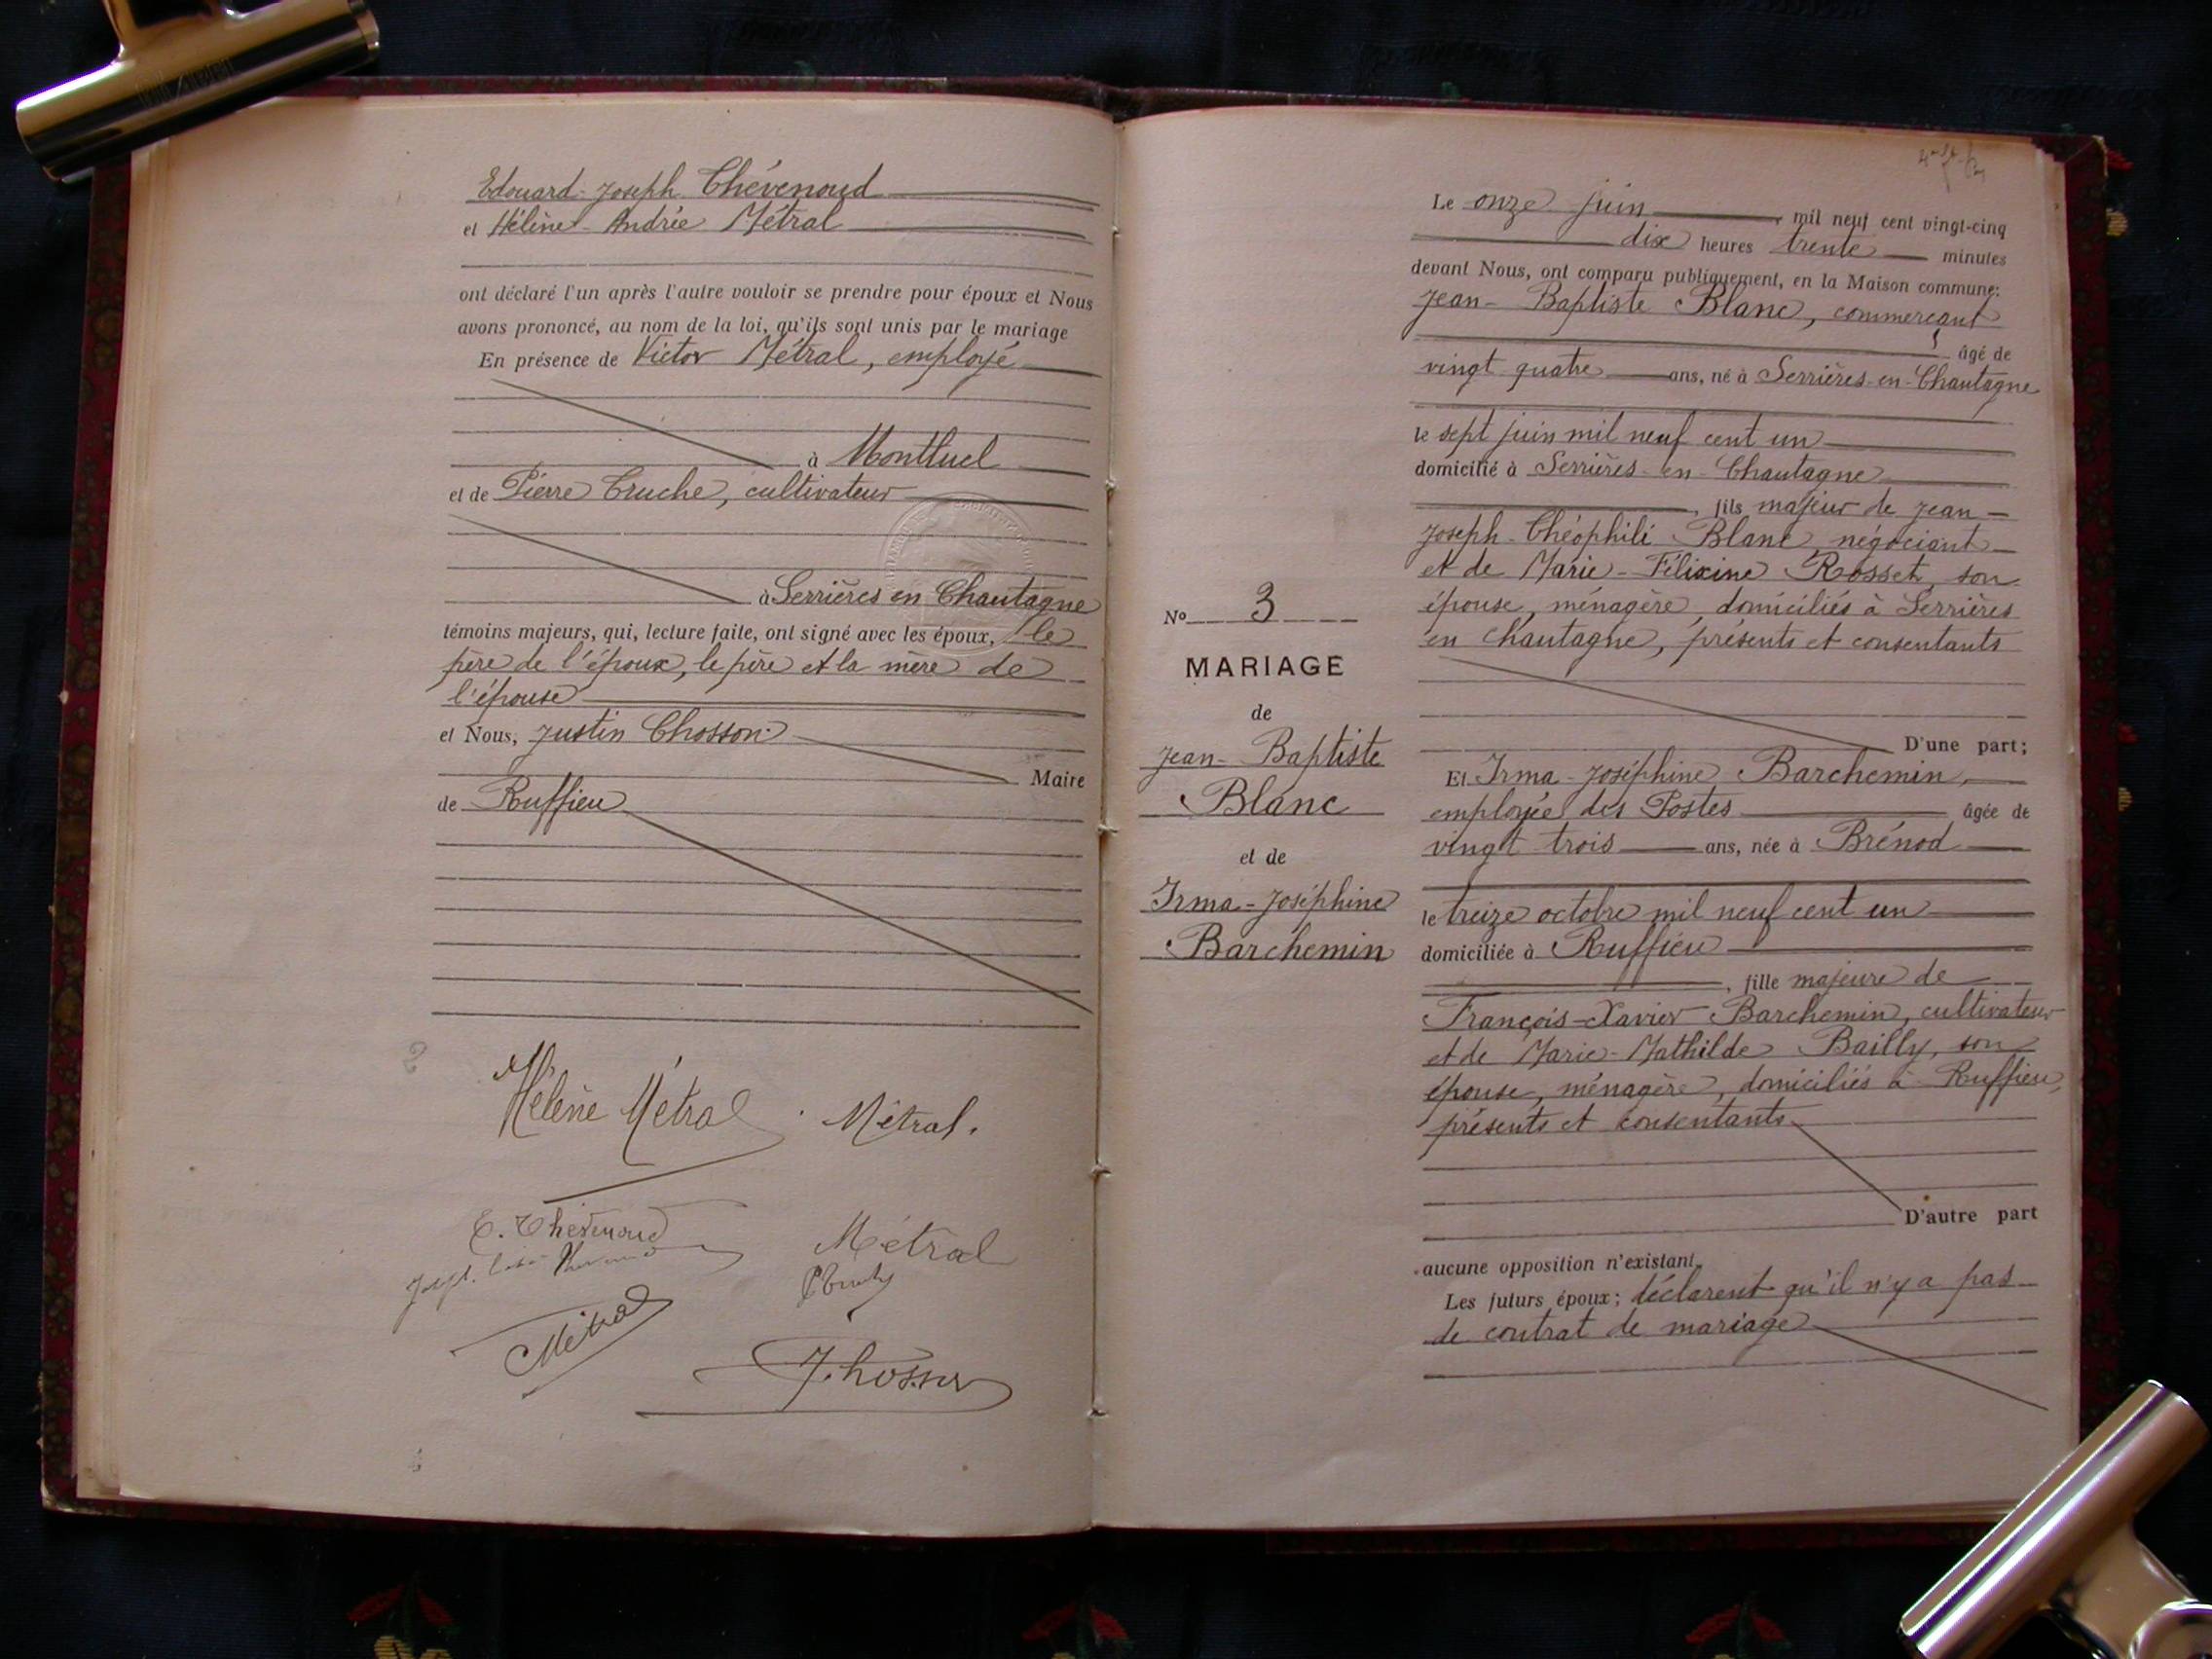 Edouard-Joseph Thévenoud
et Hélène-Andrée Métral
ont déclaré l'un après l'autre vouloir se prendre pour époux et Nous
avons prononcé, au nom de la loi, qu'ils sont unis par le mariage
En présence de Victor Métral, employé
à Montluel
et de Pierre Truche, cultivateur
à Serrières en Chautagne
témoins majeurs, qui, lecture faite, ont signé avec les époux, le
père de l'époux, le père et la mère de
l'épouse
et Nous, Justin Chosson
Maire
de Ruffieu
2
Hélène Métral
Métral.
E. Thévenoud
Métral
Métral
J. Chosson
Le onze juin mil neuf cent vingt-cinq
dix heures trente minutes
devant Nous, ont comparu publiquement, en la Maison commune:
Jean-Baptiste Blanc, commerçant
âgé de
vingt quatre ans, né à Serrières-en-Chautagne
le sept juin mil neuf cent un
domicilié à Serrières-en-Chautagne
, fils majeur de Jean-
Joseph-Théophile Blanc, négociant
et de Marie-Félixine Rosset, son
épouse, ménagère, domiciliés à Serrières
en Chautagne, présents et consentants
D'une part;
Et Irma-Joséphine Barchemin,
employée des Postes âgée de
vingt trois ans, née à Brénod
le treize octobre mil neuf cent un
domiciliée à Ruffieu
, fille majeure de
François-Xavier Barchemin, cultivateur
et de Marie-Mathilde Bailly, son
épouse, ménagère, domiciliés à Ruffieu,
présents et consentants
D'autre part
aucune opposition n'existant.
Les futurs époux; déclarent qu'il n'y a pas
de contrat de mariage
No 3
MARIAGE
de
Jean-Baptiste
Blanc
et de
Irma-Joséphine
Barchemin